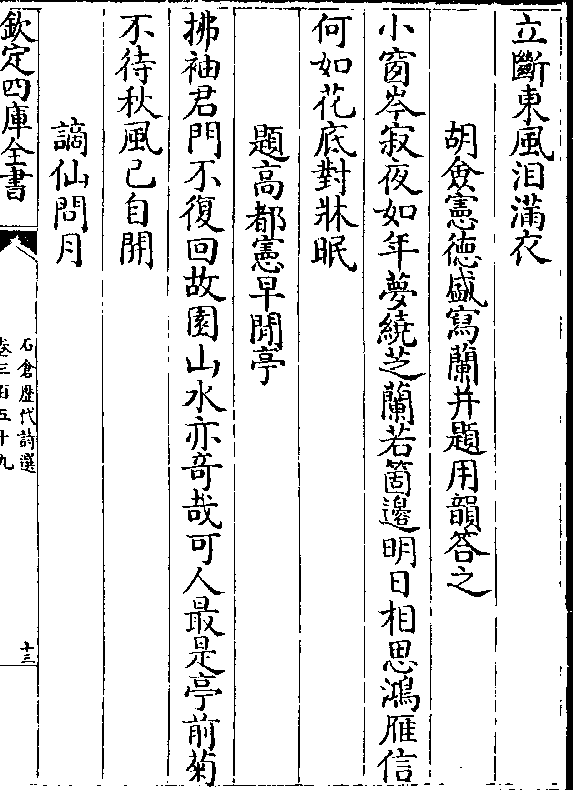 立斷東風泪滿衣
胡僉憲徳盛寫蘭并題用韻答之
小窗岑寂夜如年夢繞芝蘭若箇邊明日相思鴻雁信
何如花底對牀眠
題高都憲早閒亭
拂袖君門不復回故園山水亦竒哉可人最是亭前菊
不待秋風已自開
謫仙問月
欽定四庫全書
石倉歴代詩選
卷三百五十九
十三